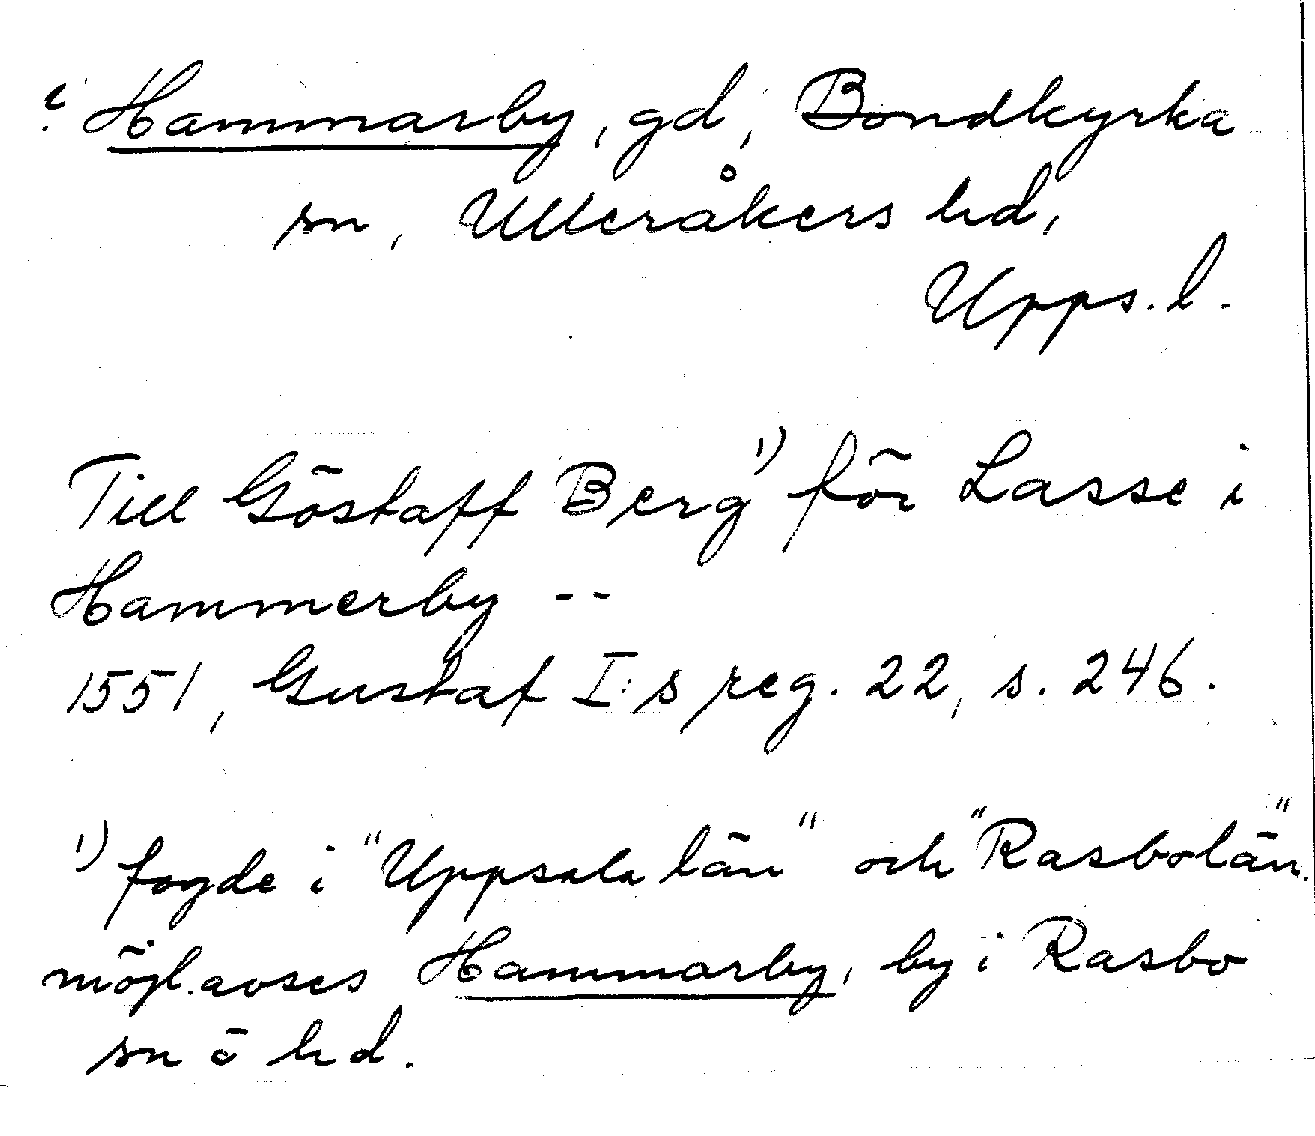 ? Hammarby, gd, Bondkyrka
sn, Ulleråkers hd,
Upps. l.
Till Göstaff Berg¹⁾ för Lasse i
Hammerby --
1551, Gustaf I:s reg. 22, s. 246.
¹⁾ fogde i "Uppsala län" och "Rasbolän".
möjl. avses Hammarby, by i Rasbo
sn o hd.